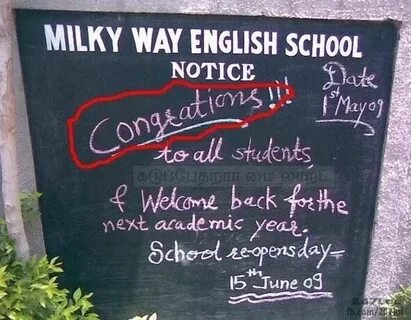 MILKY WAY ENGLISH SCHOOL
NOTICE
Date
1st May 09
Congrations!!!
to all students
& Welcome back for the
next academic year.
School re-opensday-
15th June 09